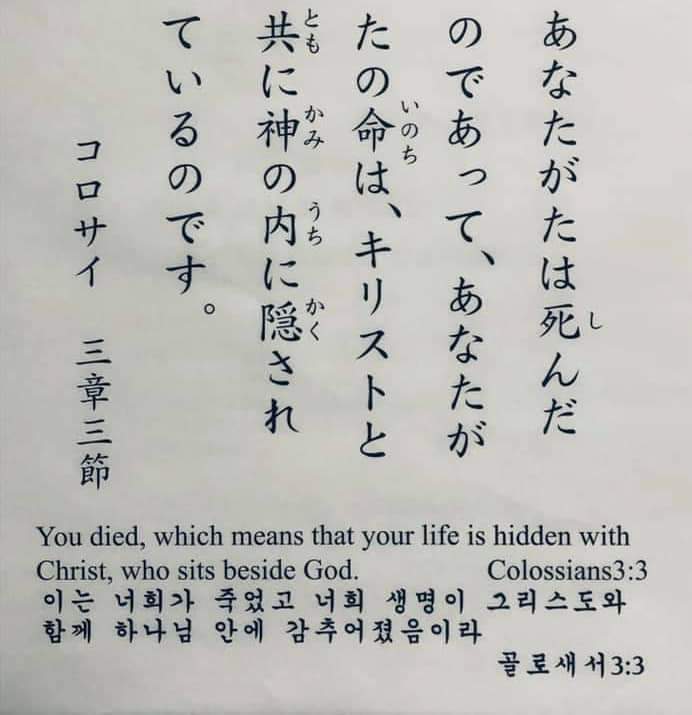 あなたがたは死んだ
のであって、あなたが
たの命は、キリストと
共に神の内に隠され
ているのです。
コロサイ 三章三節
し
いのち
とも かみ うち かく
You died, which means that your life is hidden with
Christ, who sits beside God. Colossians3:3
이는 너희가 죽었고 너희 생명이 그리스도와
함께 하나님 안에 감추어졌음이라
골로새서3:3